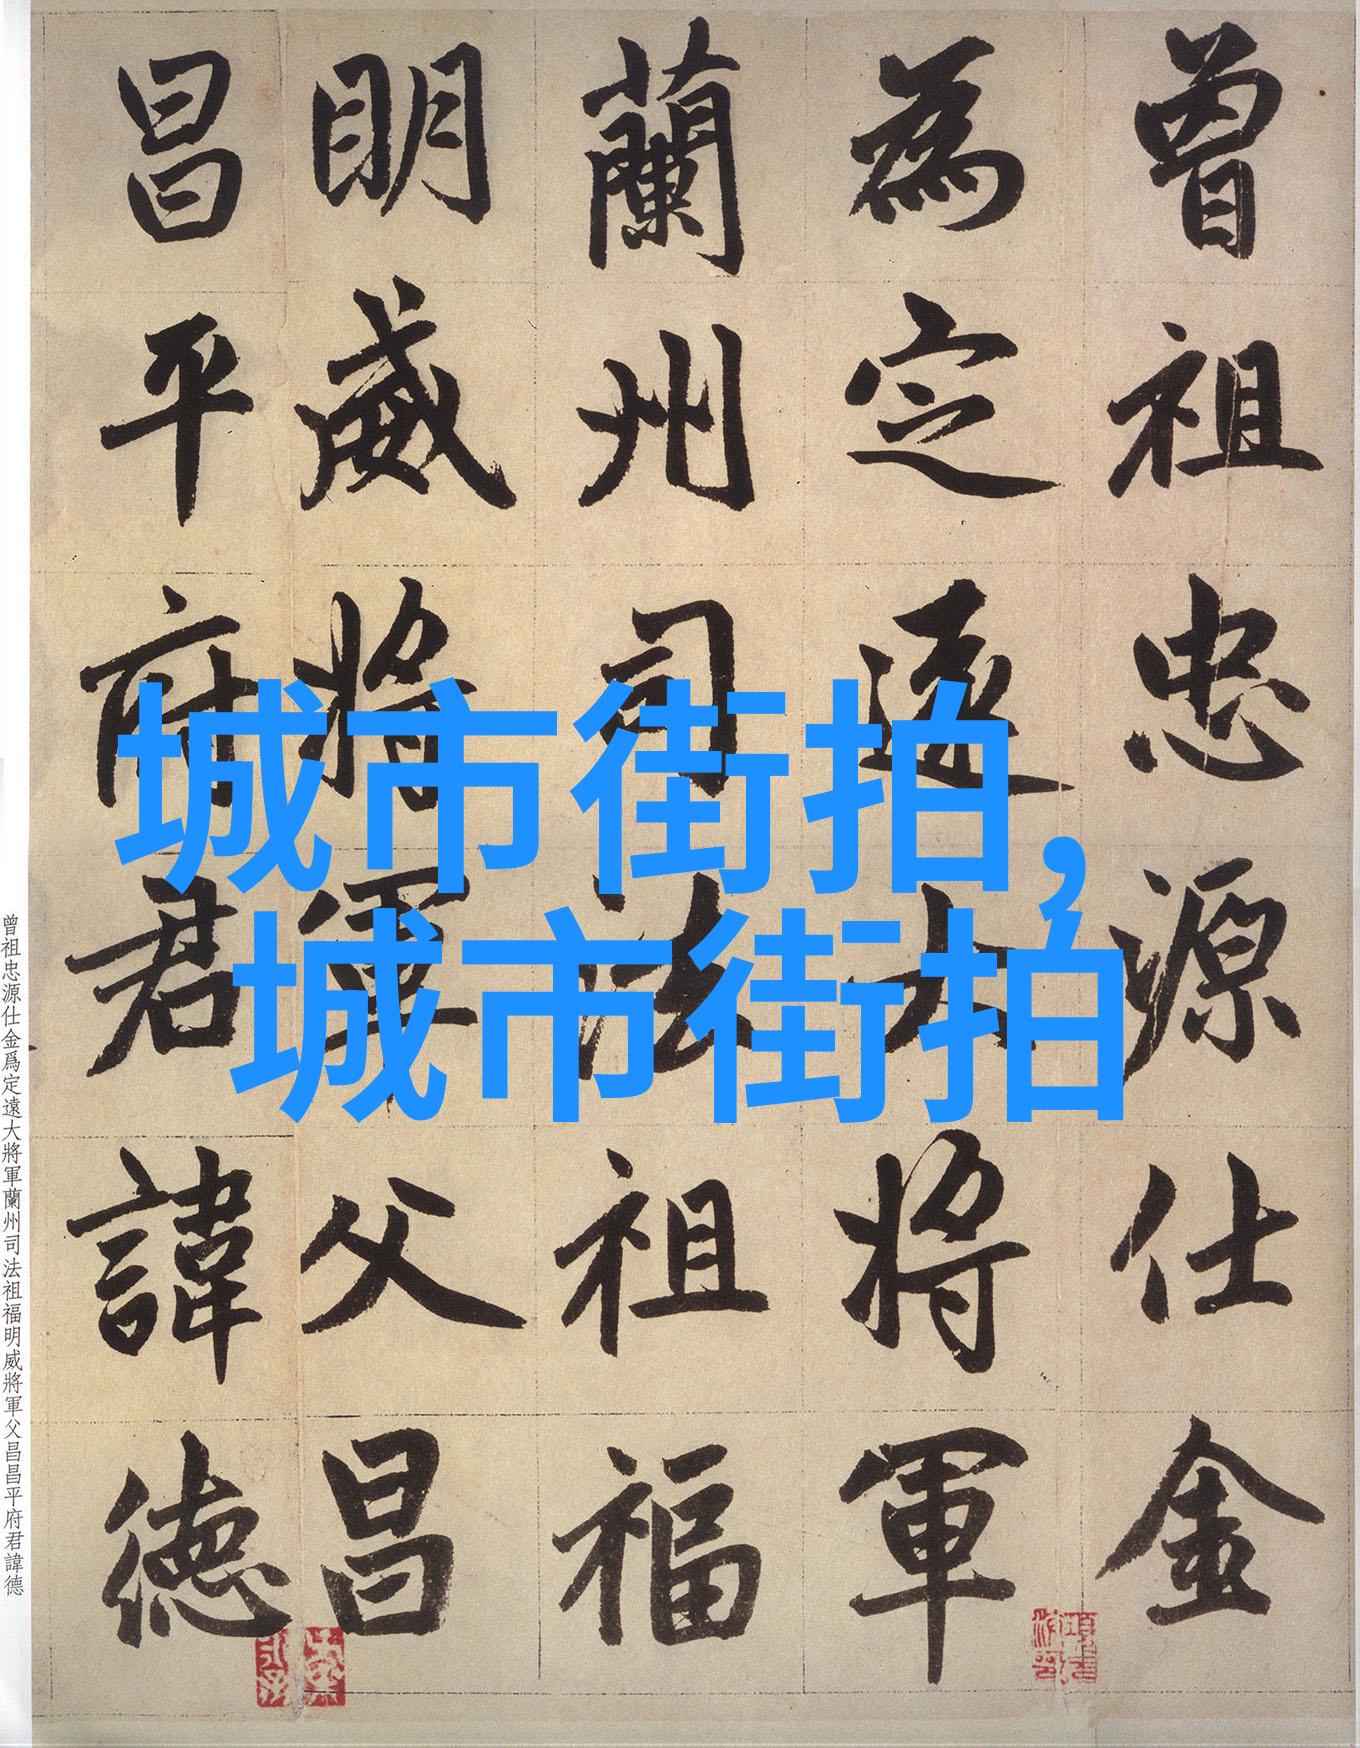 曾祖忠源仕金
為定遠大將軍
蘭州司法祖福
明威將軍父昌
昌平府君諱德
城市街拍,
城市街拍
曾祖忠源仕金爲定遠大將軍蘭州司法祖福明威將軍父昌昌平府君諱德